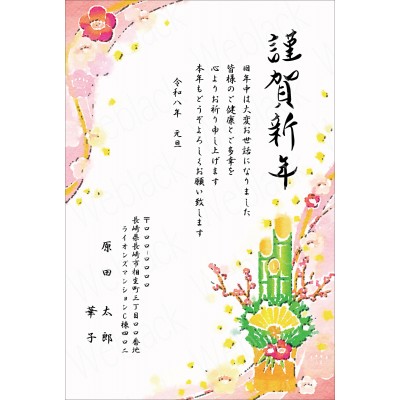 謹賀新年
旧年中は大変お世話になりました
皆様のご健康とご多幸を
心よりお祈り申し上げます
本年もどうぞよろしくお願い致します
令和八年　元旦
〒〇〇〇-〇〇〇〇
長崎県長崎市相生町三丁目〇〇番地
ライオンズマンションC棟四〇二
原田　太郎
華子